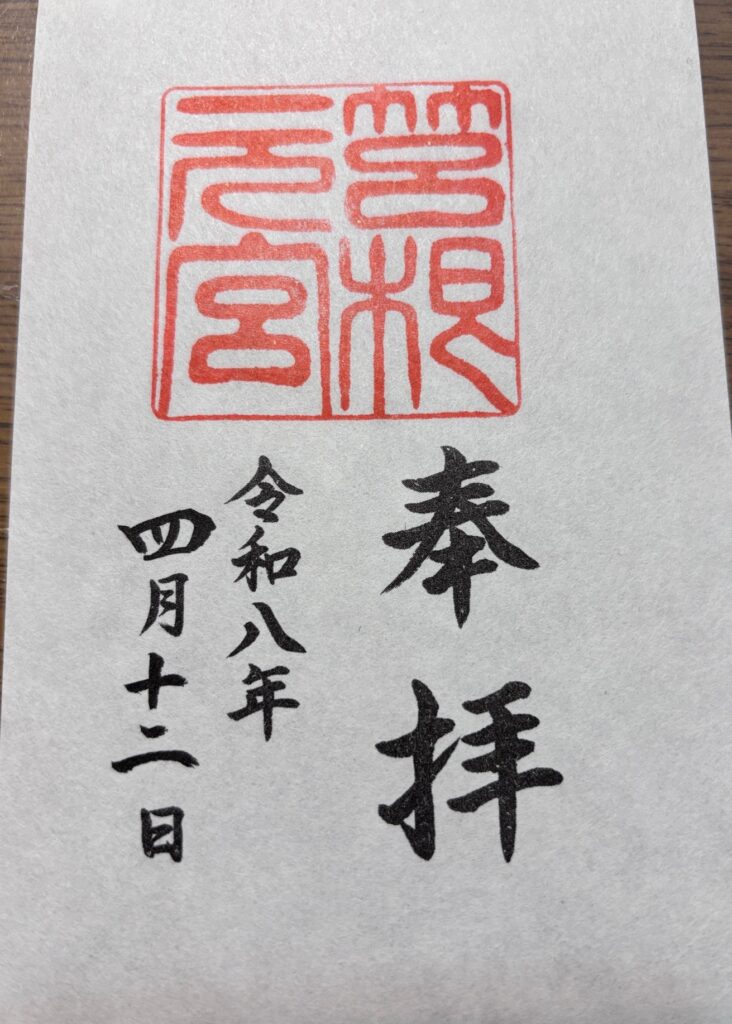 筥根
元宮
奉拝
令和八年
四月十二日